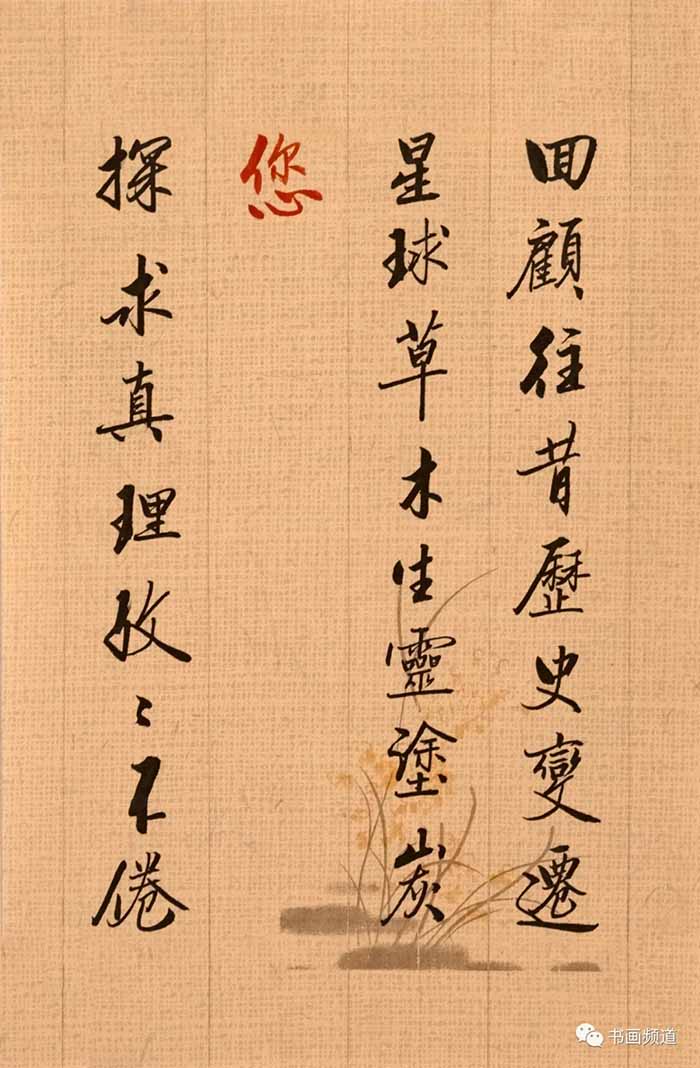 回顧往昔歷史變遷
星球草木生靈塗炭
您
探求真理孜〻不倦
书画频道